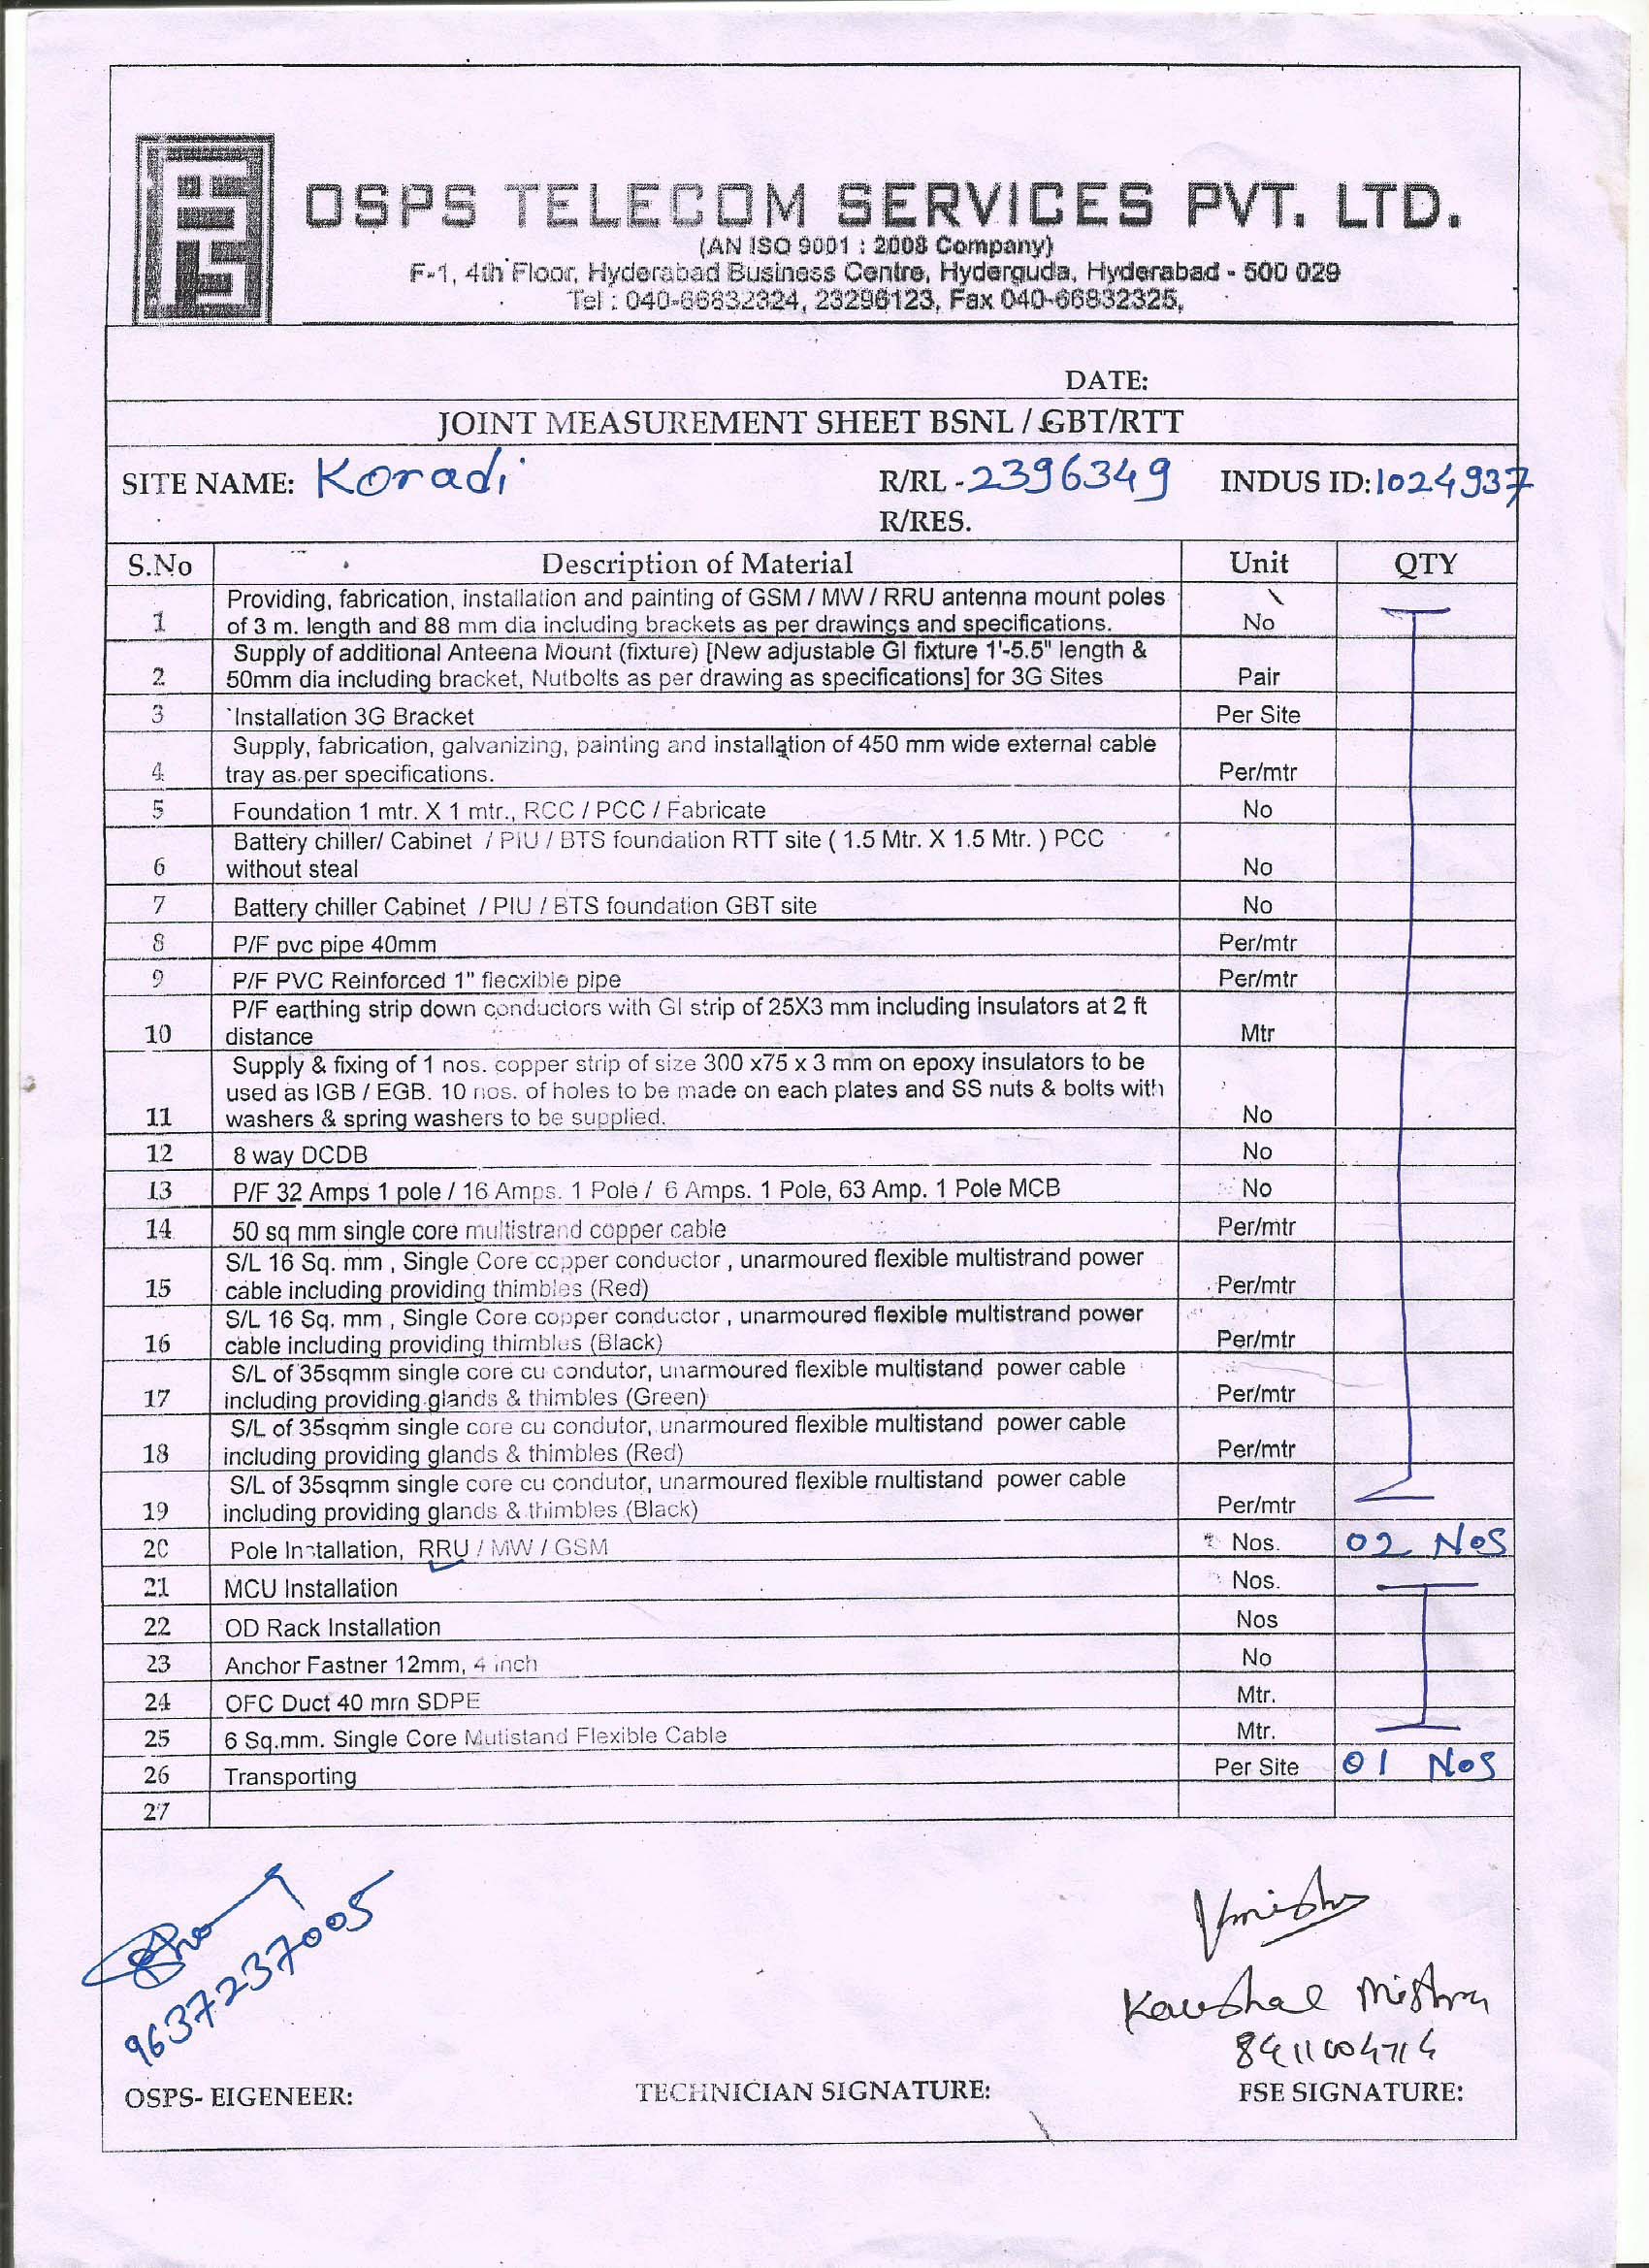 OSPS TELECOM SERVICES PVT. LTD.
(AN ISO 9001 : 2008 Company)
F-1, 4th Floor, Hyderabad Business Centre, Hyderguda, Hyderabad - 500 029
Tel : 040-66832324, 23296123, Fax 040-66832325,
DATE:
JOINT MEASUREMENT SHEET BSNL / GBT/RTT
SITE NAME: Koradi R/RL - 2396349 INDUS ID: 1024937
R/RES.
S.No Description of Material Unit QTY
1 Providing, fabrication, installation and painting of GSM / MW / RRU antenna mount poles
of 3 m. length and 88 mm dia including brackets as per drawings and specifications. No
2 Supply of additional Anteena Mount (fixture) [New adjustable GI fixture 1'-5.5" length &
50mm dia including bracket, Nutbolts as per drawing as specifications] for 3G Sites Pair
3 Installation 3G Bracket Per Site
4 Supply, fabrication, galvanizing, painting and installation of 450 mm wide external cable
tray as per specifications. Per/mtr
5 Foundation 1 mtr. X 1 mtr., RCC / PCC / Fabricate No
6 Battery chiller/ Cabinet / PIU / BTS foundation RTT site ( 1.5 Mtr. X 1.5 Mtr. ) PCC
without steal No
7 Battery chiller Cabinet / PIU / BTS foundation GBT site No
8 P/F pvc pipe 40mm Per/mtr
9 P/F PVC Reinforced 1" flecxible pipe Per/mtr
10 P/F earthing strip down conductors with GI strip of 25X3 mm including insulators at 2 ft
distance Mtr
11 Supply & fixing of 1 nos. copper strip of size 300 x75 x 3 mm on epoxy insulators to be
used as IGB / EGB. 10 nos. of holes to be made on each plates and SS nuts & bolts with
washers & spring washers to be supplied. No
12 8 way DCDB No
13 P/F 32 Amps 1 pole / 16 Amps. 1 Pole / 6 Amps. 1 Pole, 63 Amp. 1 Pole MCB No
14 50 sq mm single core multistrand copper cable Per/mtr
15 S/L 16 Sq. mm , Single Core copper conductor , unarmoured flexible multistrand power
cable including providing thimbles (Red) Per/mtr
16 S/L 16 Sq. mm , Single Core copper conductor , unarmoured flexible multistrand power
cable including providing thimbles (Black) Per/mtr
17 S/L of 35sqmm single core cu condutor, unarmoured flexible multistand power cable
including providing glands & thimbles (Green) Per/mtr
18 S/L of 35sqmm single core cu condutor, unarmoured flexible multistand power cable
including providing glands & thimbles (Red) Per/mtr
19 S/L of 35sqmm single core cu condutor, unarmoured flexible multistand power cable
including providing glands & thimbles (Black) Per/mtr
20 Pole Installation, RRU / MW / GSM Nos. 02 Nos
21 MCU Installation Nos.
22 OD Rack Installation Nos
23 Anchor Fastner 12mm, 4 inch No
24 OFC Duct 40 mm SDPE Mtr.
25 6 Sq.mm. Single Core Mutistand Flexible Cable Mtr.
26 Transporting Per Site 01 Nos
27
9637237005
Kaushal Mishra
OSPS- EIGENEER: TECHNICIAN SIGNATURE: FSE SIGNATURE: